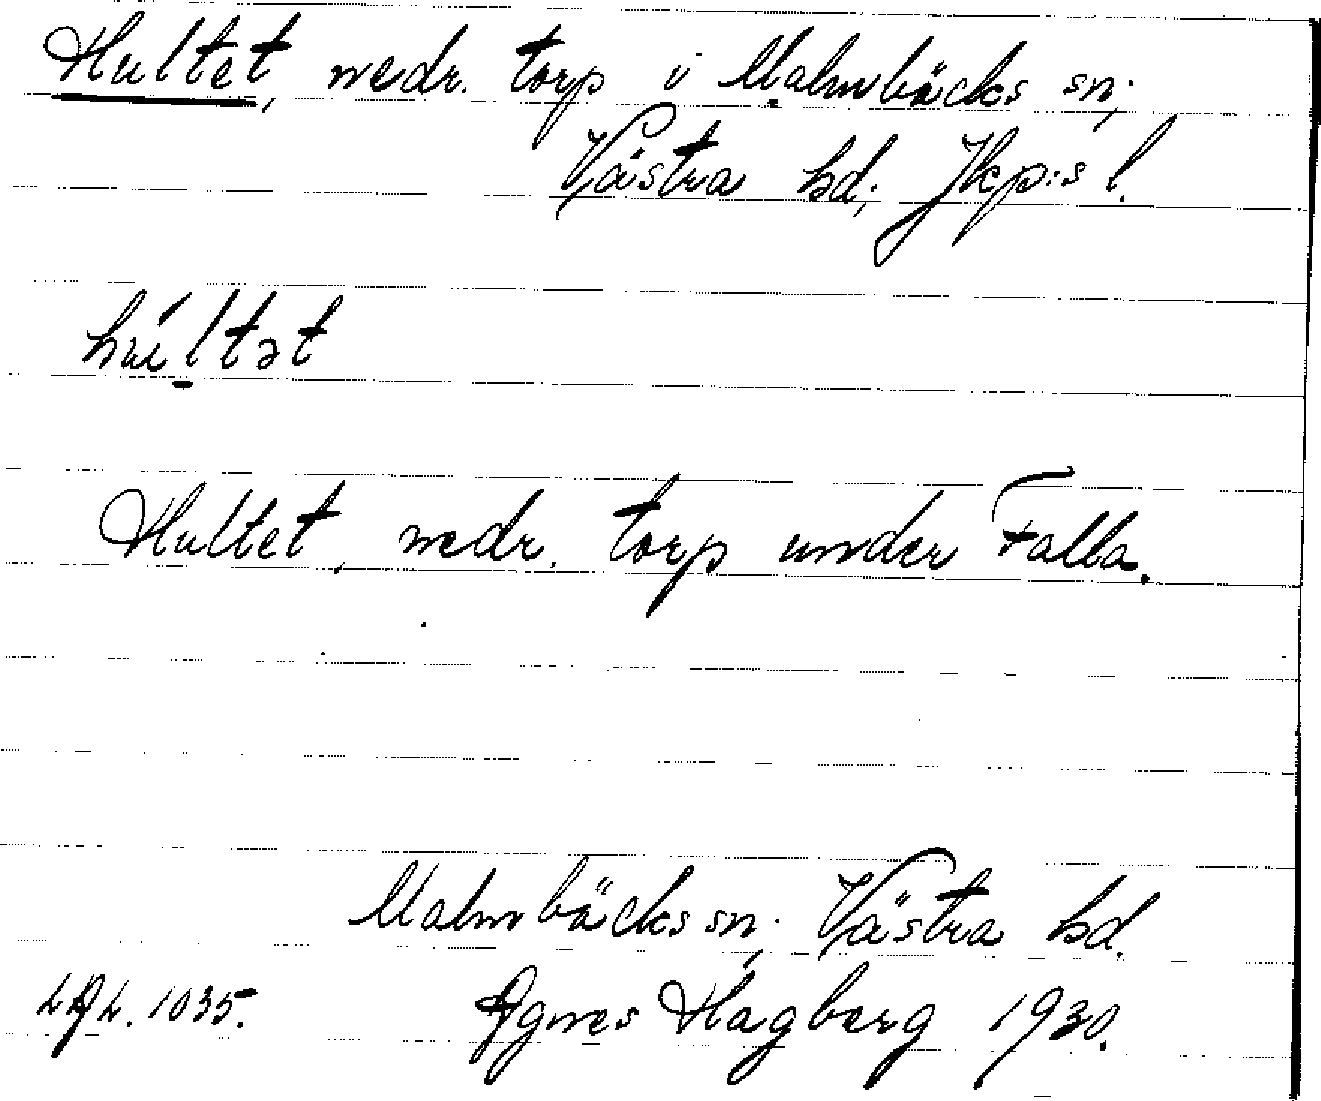 Hultet, nedr. torp i Malmbäcks sn;
Västra hd; Jkp:s l.
húltət
Hultet, nedr. torp under Falla.
Malmbäcks sn; Västra hd.
LAL. 1035. Agnes Hagberg 1930.